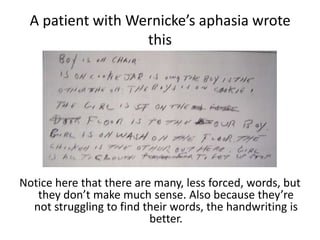 A patient with Wernicke's aphasia wrote
this
BOY IS ON CHAIR
IS ON COOKIE JAR IS ON THE BOY IS THE
OTHER THE ON THE BOYS IS ON COOKIE!
THE GIRL IS ST ON THE
FLOOR IS TO THE OUR BOY.
GIRL IS ON WASH ON THE FLOOR THE
CHICKEN IS THE OTHER OUT HERE. GIRL
IS ALL TO TO GET UP
Notice here that there are many, less forced, words, but
they don't make much sense. Also because they're
not struggling to find their words, the handwriting is
better.